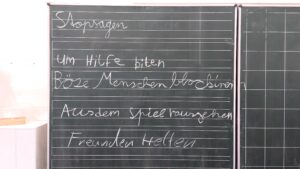 Stopsagen
um Hilfe biten
Böze Menschen blockiren
Aus dem Spiel rausgehen
Freunden Helfen